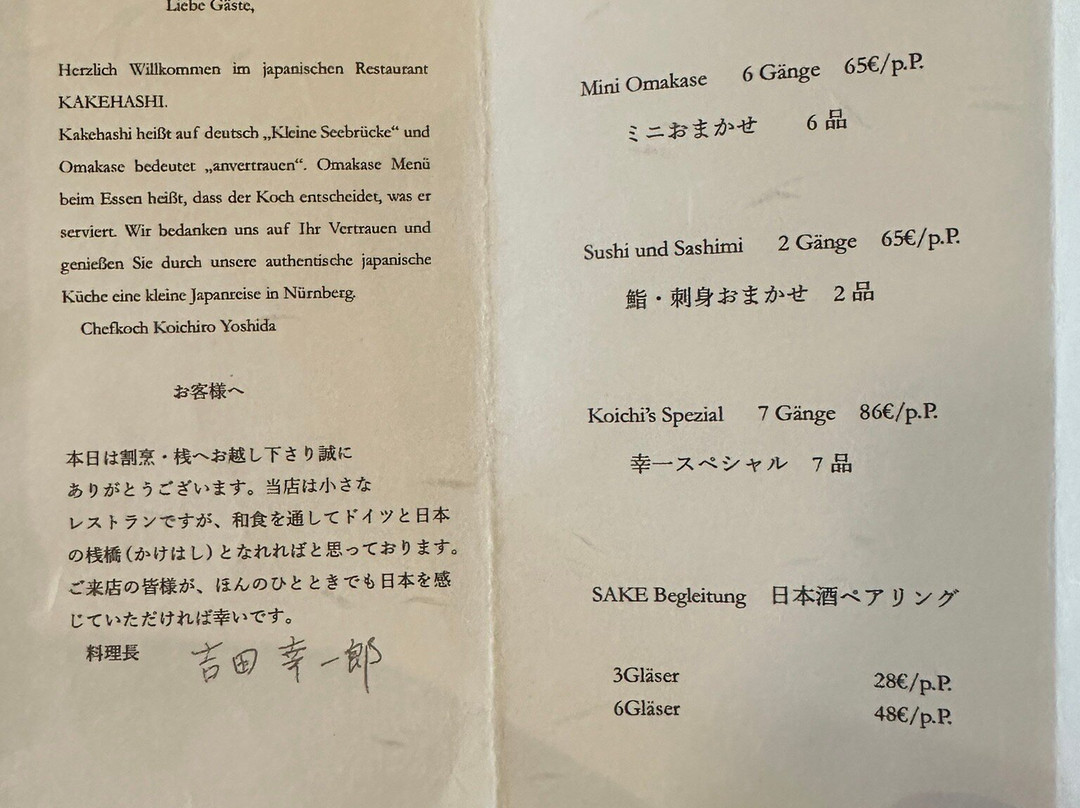 Liebe Gäste,
Herzlich Willkommen im japanischen Restaurant
KAKEHASHI.
Kakehashi heißt auf deutsch „Kleine Seebrücke“ und
Omakase bedeutet „anvertrauen“. Omakase Menü
beim Essen heißt, dass der Koch entscheidet, was er
serviert. Wir bedanken uns auf Ihr Vertrauen und
genießen Sie durch unsere authentische japanische
Küche eine kleine Japanreise in Nürnberg.
Chefkoch Koichiro Yoshida
お客様へ
本日は割烹・桟へお越し下さり誠に
ありがとうございます。当店は小さな
レストランですが、和食を通してドイツと日本
の桟橋(かけはし)となれればと思っております。
ご来店の皆様が、ほんのひとときでも日本を感
じていただければ幸いです。
料理長 吉田 幸一郎
Mini Omakase 6 Gänge 65€/p.P.
ミニおまかせ 6 品
Sushi und Sashimi 2 Gänge 65€/p.P.
鮨・刺身おまかせ 2 品
Koichi's Spezial 7 Gänge 86€/p.P.
幸一スペシャル 7 品
SAKE Begleitung 日本酒ペアリング
3Gläser 28€/p.P.
6Gläser 48€/p.P.